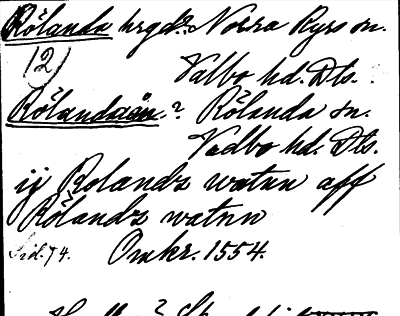 Rölanda hrgd: Norra Ryrs sn.
(2) Valbo hd. Dls.
Rölandaån.? Rölanda sn.
Vedbo hd. Dls.
ij Rolandz watnn aff
Rölandz watnn
74. Omkr. 1554.